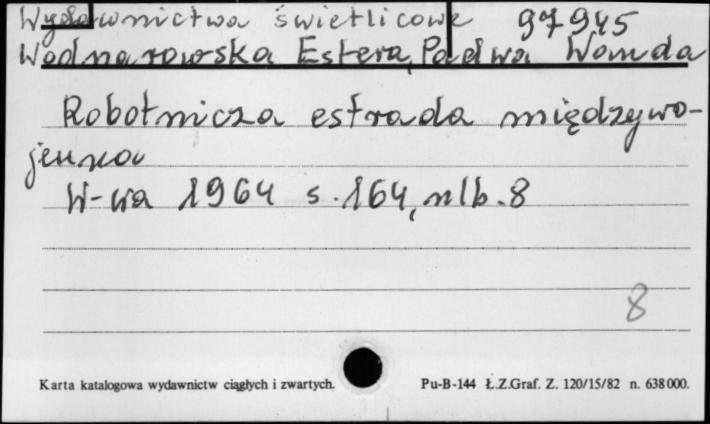 Wydawnictwa świetlicowe 97945
Wodnarowska Estera, Padwa Wanda
Robotnicza estrada międzywo-
jenna
W-wa 1964 s. 164, nlb. 8
8
Karta katalogowa wydawnictw ciągłych i zwartych.
Pu-B-144 Ł.Z.Graf. Z. 120/15/82 n. 638000.